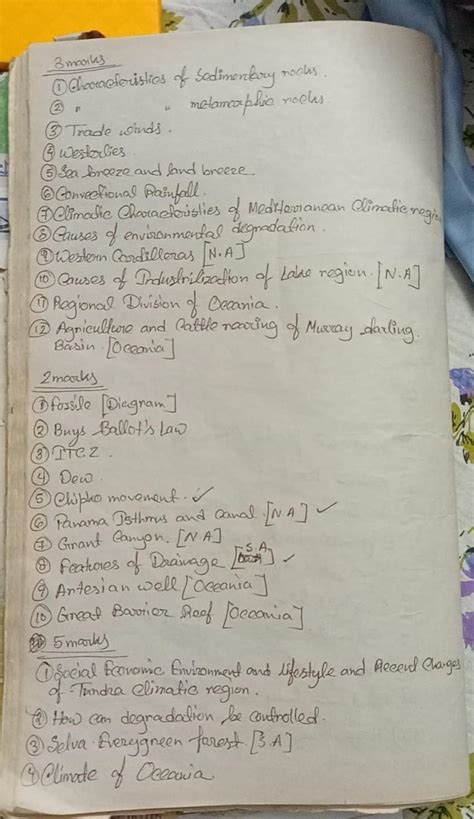 3 marks
① Characteristics of Sedimentary rocks.
② " " metamorphic rocks
③ Trade winds.
④ Westerlies
⑤ Sea breeze and land breeze.
⑥ Convectional Rainfall.
⑦ Climatic Characteristics of Mediterranean Climatic region
⑧ Causes of environmental degradation.
⑨ Western Cordilleras [N.A]
⑩ Causes of Industrilization of Lake region. [N.A]
⑪ Regional Division of Oceania.
⑫ Agriculture and Cattle rearing of Murray darling.
Basin. [Oceania]
2 marks
① fossile [Diagram]
② Buys Ballot's Law
③ ITCZ.
④ Dew.
⑤ Chipko movement. ✓
⑥ Panama Isthmus and Canal. [NA] ✓
⑦ Grant Canyon. [NA]
⑧ Features of Drainage [S.A] ✓
⑨ Artesian well [Oceania]
⑩ Great Barrier Reef [Oceania]
5 marks
① Social Economic Environment and lifestyle and Recent Changes
of Tundra climatic region.
② How can degradation be controlled.
③ Selva Evergreen forest. [S.A]
④ Climate of Oceania